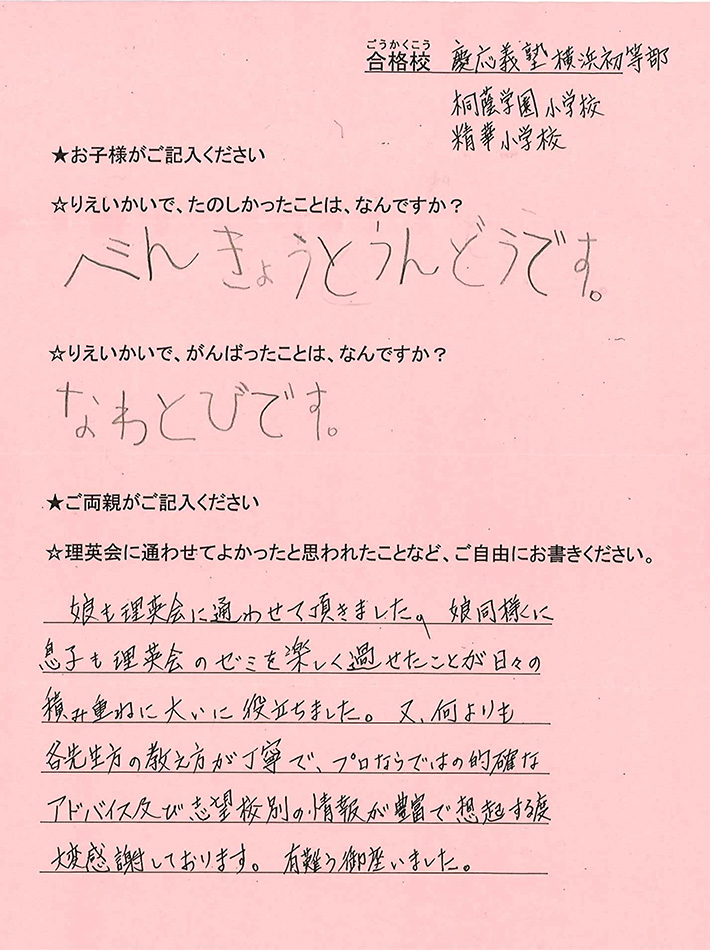 ごうかくこう
合格校 慶応義塾横浜初等部
桐蔭学園小学校
精華小学校
★お子様がご記入ください
☆りえいかいで、たのしかったことは、なんですか？
べんきょうとうんどうです。
☆りえいかいで、がんばったことは、なんですか？
なわとびです。
★ご両親がご記入ください
☆理英会に通わせてよかったと思われたことなど、ご自由にお書きください。
娘も理英会に通わせて頂きました。娘同様に
息子も理英会のゼミを楽しく過せたことが日々の
積み重ねに大いに役立ちました。又、何よりも
各先生方の教え方が丁寧で、プロならではの的確な
アドバイス及び志望校別の情報が豊富で想起する度
大変感謝しております。有難う御座いました。